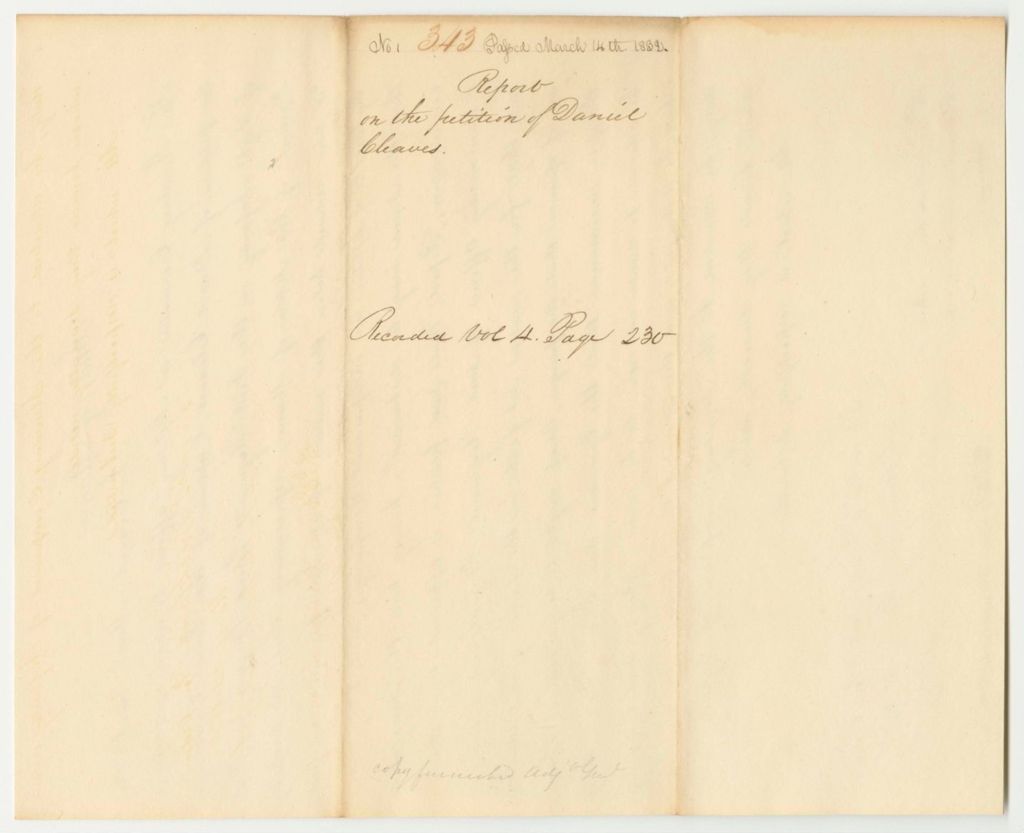 No. 1 343 Passed March 14th 1832.
Report
on the petition of Daniel
Cleaves.
Recorded Vol 4. Page 230
copy furnished Adjt Genl